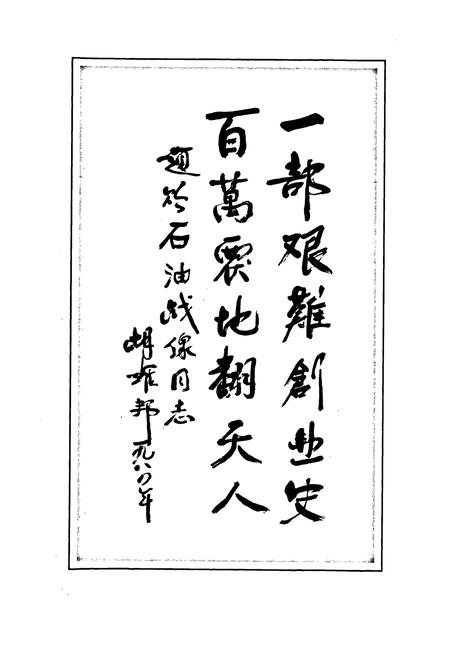 一部艰難創业史
百萬覂地翻天人
题给石油战線同志
胡耀邦一九八〇年